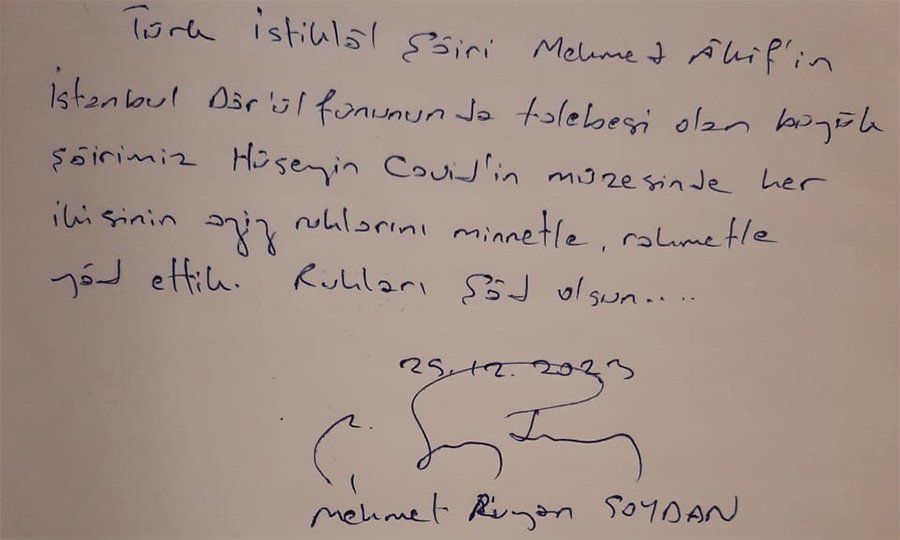 Türk İstiklâl Şâiri Mehmet Âkif'in
İstanbul Dâr'ülfununun da talebesi olan büyük
şâirimiz Hüseyin Cavid'in müzesinde her
ikisinin aziz ruhlarını minnetle, rahmetle
yâd ettik. Ruhları şâd olsun.....
25.12.2023
Mehmet Rıyan SOYDAN